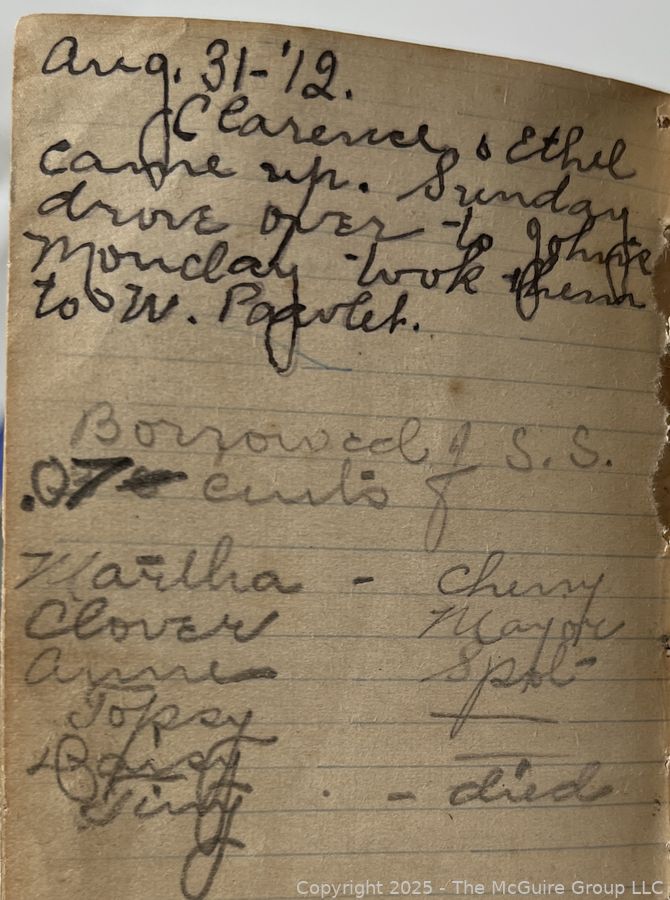 Aug. 31-'12.
Clarence & Ethel
came up. Sunday
drove over to John's
Monday took them
to W. Pawlet.
Borrowed of S.S.
.07 cents
Martha - Cherry
Clover Mayor
Anne Spot
Topsy
Daisy
Tiny - died
Copyright 2025 - The McGuire Group LLC